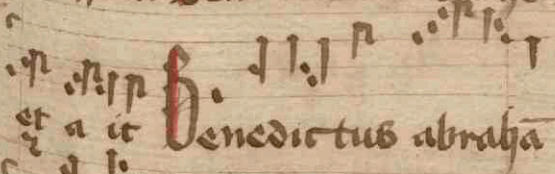 et a it Benedictus abrahā